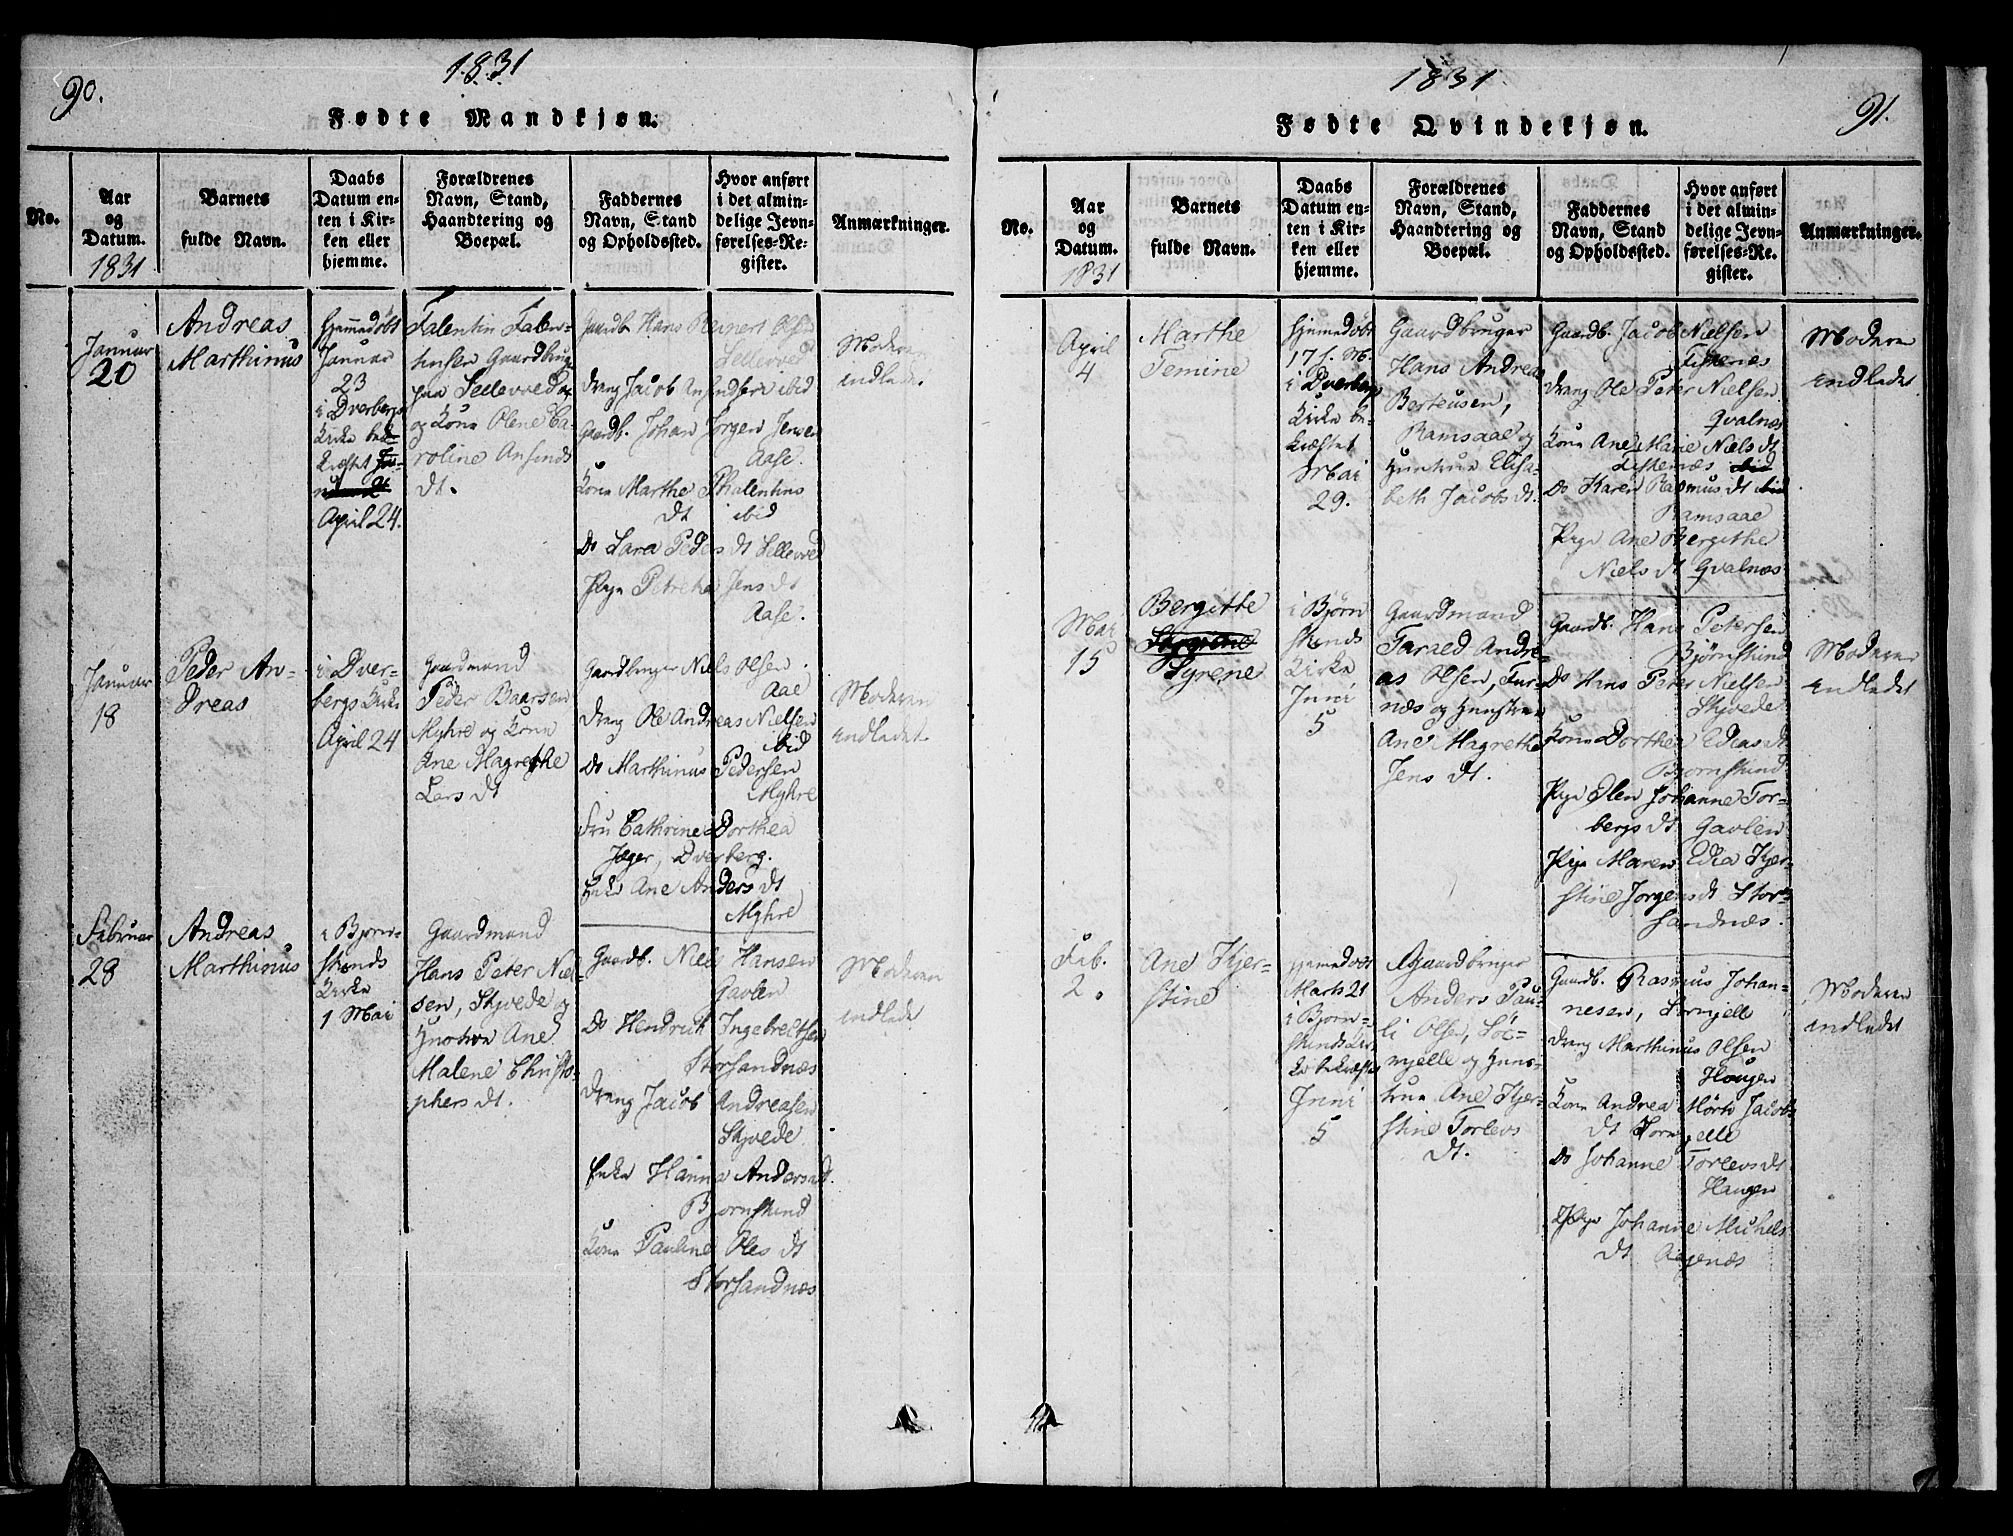 90.
1831
Fødte Mandkjøn.
No.
Aar
og
Datum.
1831
Barnets
fulde Navn.
Daabs
Datum en-
ten i Kir-
ken eller
hjemme.
Forældrenes
Navn, Stand,
Haandtering og
Boepæl.
Faddernes
Navn, Stand
og Opholdssted.
Hvor anført
i det almin-
delige Jevn-
førelses-Re-
gister.
Anmærkninger.
Januar
20
Andreas
Marthinus
Hjemmedøbt
Januar
23
i Dverbergs
Kirke bek-
ræftet
April 24.
Falentin Falen-
tinsen Gaardbruger
paa Sellevold
og Kone Olene Ca-
roline Ansends
Dt.
Gaardb. Hans Reinert Olsen
Sellevold
Dreng Jacob Ansendsen ibid
Gaardb. Johan Jørgen Jensen
Aase.
Kone Marthe Phalentins
Dt ibid
Do Sara Peders Dt Sellevold
Pige Petrecha Jens Dt
Aase.
Moderen
indledt.
Januar
18
Peder An-
dreas
i Dver-
bergs Kirke
April 24
Gaardmand
Peder Baarsen
Myhre og Kone
Ane Magrethe
Lars Dt
Gaardbruger Niels Olsen
Aae
Dreng Ole Andreas Nielsen
ibid
Do Marthinus Pedersen
Myhre
Fru Cathrine Dorthea
Jæger, Dverberg.
Enke Ane Anders Dt
Myhre
Moderen
indledet.
Februar
28
Andreas
Marthinus
i Bjørn-
skinds
Kirke
1 Mai
Gaardmand
Hans Peter Niel-
sen, Skjvede og
Hustrue Ane
Malene Christo-
phers Dt.
Gaardb. Niels Hansen
Gavlen
Do Hendrich Ingebrecthsen
Storsandnæs
Dreng Jacob Andreasen
Skjvede
Enke Hanna Anders Dt.
Bjørnskind
Kone Pauline Oles Dt
Storsandnæs
Moderen
indledet
1831
91.
Fødte Qvindekjøn.
No.
Aar
og
Datum.
1831
Barnets
fulde Navn.
Daabs
Datum en-
ten i Kir-
ken eller
hjemme.
Forældrenes
Navn, Stand,
Haandtering og
Boepæl.
Faddernes
Navn, Stand
og Opholdssted.
Hvor anført
i det almin-
delige Jevn-
førelses-Re-
gister.
Anmærkninger.
April
4
Marthe
Temine
Hjemedøbt
17 s. M.
i Dverbergs
Kirke be-
kræftet
Mai
29.
Gaardbruger
Hans Andreas
Berteusen,
Ramsaae og
Hustrue Elisa-
beth Jacobs dt.
Gaardb. Jacob Nielsen
Fiskenæs
Dreng Ole Peter Nielsen
Qvalnæs
Kone Ane Marie Niels dt
Fiskenæs
Do Karen Rasmus dt
Ramsaae
Pige Ane Bergithe
Niels dt Qvalnæs
Moderen
indledet
Mai
15
Bergitte
Syrene
i Bjørn
skinds
Kirke
Juni
5
Gaardmand
Taraed Andre-
as Olsen, Fur-
næs og Hustrue
Ane Magrethe
Jens Dt.
Gaardb. Hans Petersen
Bjørnskind
Do Hans Peter Nielsen
Skjvede
Kone Dorthea Edias dt
Bjørnskind
Pige Elen Johanne Tor-
bergs Dt. Gavlen
Pige Maren Edia Kjer-
stine Jørgens dt Stor-
sandnæs.
Moderen
indledet
Feb.
2.
Ane Kjer-
stine
Hjemedøbt
Marts 21
i Bjørn-
skinds Kir-
ke bekræftet
Juni
5
Gaardbruger
Anders Pau-
li Olsen, Sör-
mjelle og Hus-
true Ane Kjer-
stine Torlevs
Dt.
Gaardb. Rasmus Johan-
nesen, Sörmjelle
Dreng Marthinus Olsen
Hougen
Kone Andrea Mørk Jacobs
dt Sörmjelle
Do Johanne Torlevs dt
Haugen
Pige Johanne Michels
Dt Aagenæs
Moderen
indledet